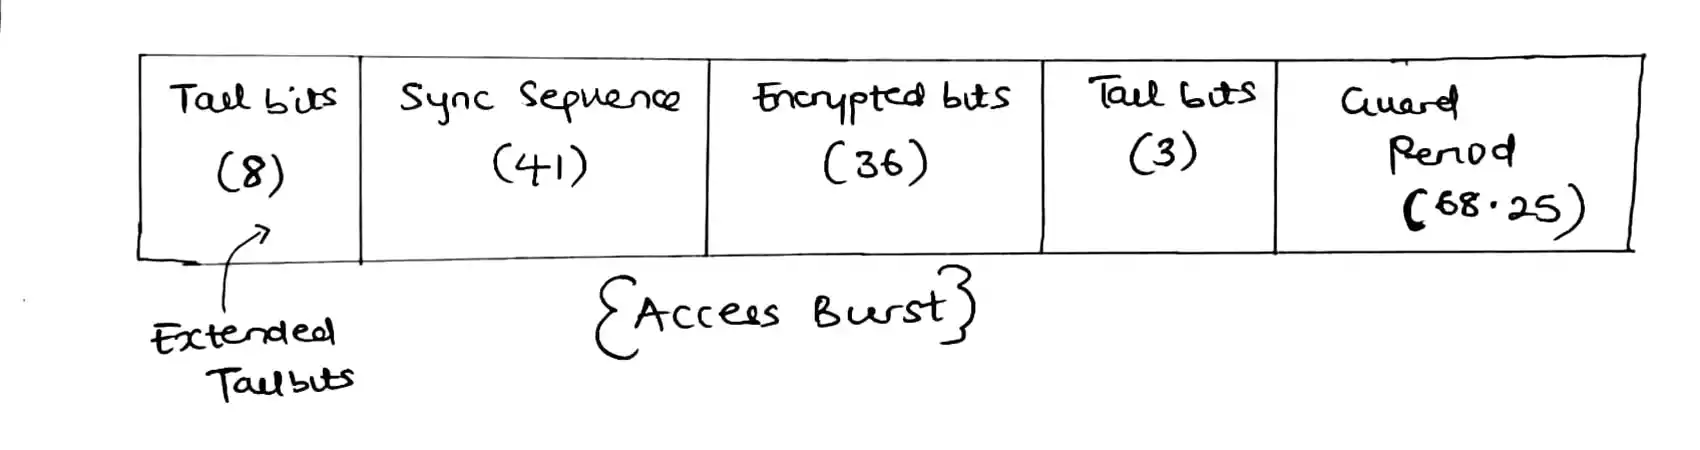 Tail bits
(8)
Sync Sequence
(41)
Encrypted bits
(36)
Tail bits
(3)
Guard
Period
(68.25)
Extended
Tailbits
{Access Burst}